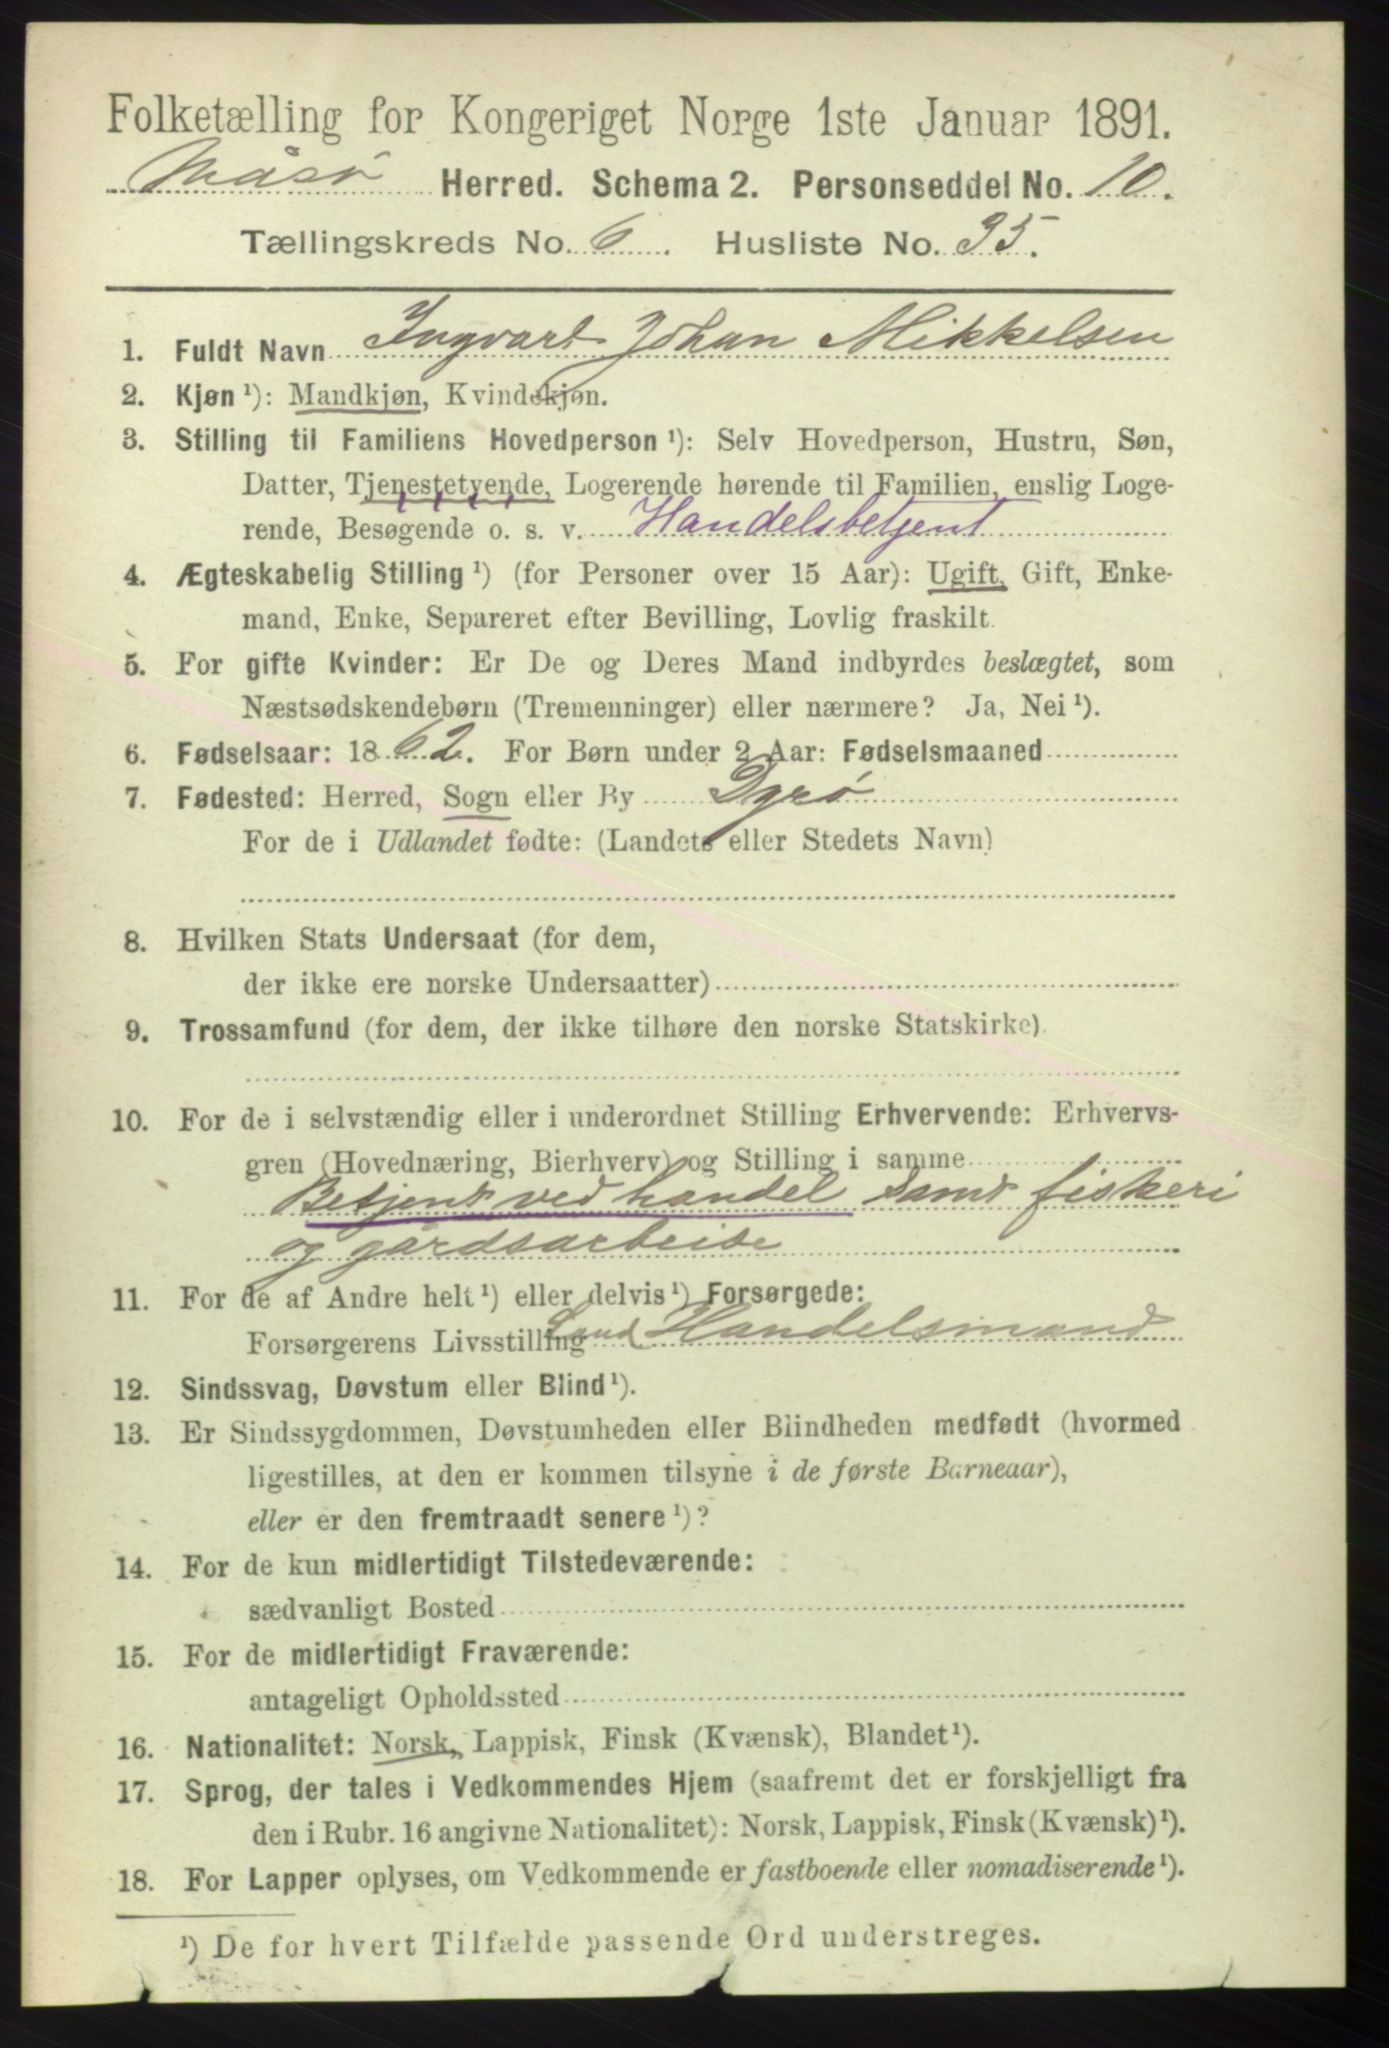 Folketælling for Kongeriget Norge 1ste Januar 1891.
Måsø Herred. Schema 2. Personseddel No. 10.
Tællingskreds No. 6. Husliste No. 35.
1. Fuldt Navn Ingvart Johan Mikkelsen
2. Kjøn ¹): Mandkjøn, Kvindekjøn.
3. Stilling til Familiens Hovedperson ¹): Selv Hovedperson, Hustru, Søn,
Datter, Tjenestetyende, Logerende hørende til Familien, enslig Loge-
rende, Besøgende o. s. v. Handelsbetjent
4. Ægteskabelig Stilling ¹) (for Personer over 15 Aar): Ugift, Gift, Enke-
mand, Enke, Separeret efter Bevilling, Lovlig fraskilt.
5. For gifte Kvinder: Er De og Deres Mand indbyrdes beslægtet, som
Næstsødskendebørn (Tremenninger) eller nærmere? Ja, Nei ¹).
6. Fødselsaar: 1862. For Børn under 2 Aar: Fødselsmaaned
7. Fødested: Herred, Sogn eller By Dyrø
For de i Udlandet fødte: (Landets eller Stedets Navn)
8. Hvilken Stats Undersaat (for dem,
der ikke ere norske Undersaatter)
9. Trossamfund (for dem, der ikke tilhøre den norske Statskirke).
10. For de i selvstændig eller i underordnet Stilling Erhvervende: Erhvervs-
gren (Hovednæring, Bierhverv) og Stilling i samme
Betjent ved handel samt fiskeri
og gårdsarbeise
11. For de af Andre helt ¹) eller delvis ¹) Forsørgede:
Forsørgerens Livsstilling Land Handelsmand
12. Sindssvag, Døvstum eller Blind ¹).
13. Er Sindssygdommen, Døvstumheden eller Blindheden medfødt (hvormed
ligestilles, at den er kommen tilsyne i de første Barneaar),
eller er den fremtraadt senere ¹)?
14. For de kun midlertidigt Tilstedeværende:
sædvanligt Bosted
15. For de midlertidigt Fraværende:
antageligt Opholdssted
16. Nationalitet: Norsk, Lappisk, Finsk (Kvænsk), Blandet ¹).
17. Sprog, der tales i Vedkommendes Hjem (saafremt det er forskjelligt fra
den i Rubr. 16 angivne Nationalitet): Norsk, Lappisk, Finsk (Kvænsk) ¹).
18. For Lapper oplyses, om Vedkommende er fastboende eller nomadiserende ¹).
¹) De for hvert Tilfælde passende Ord understreges.